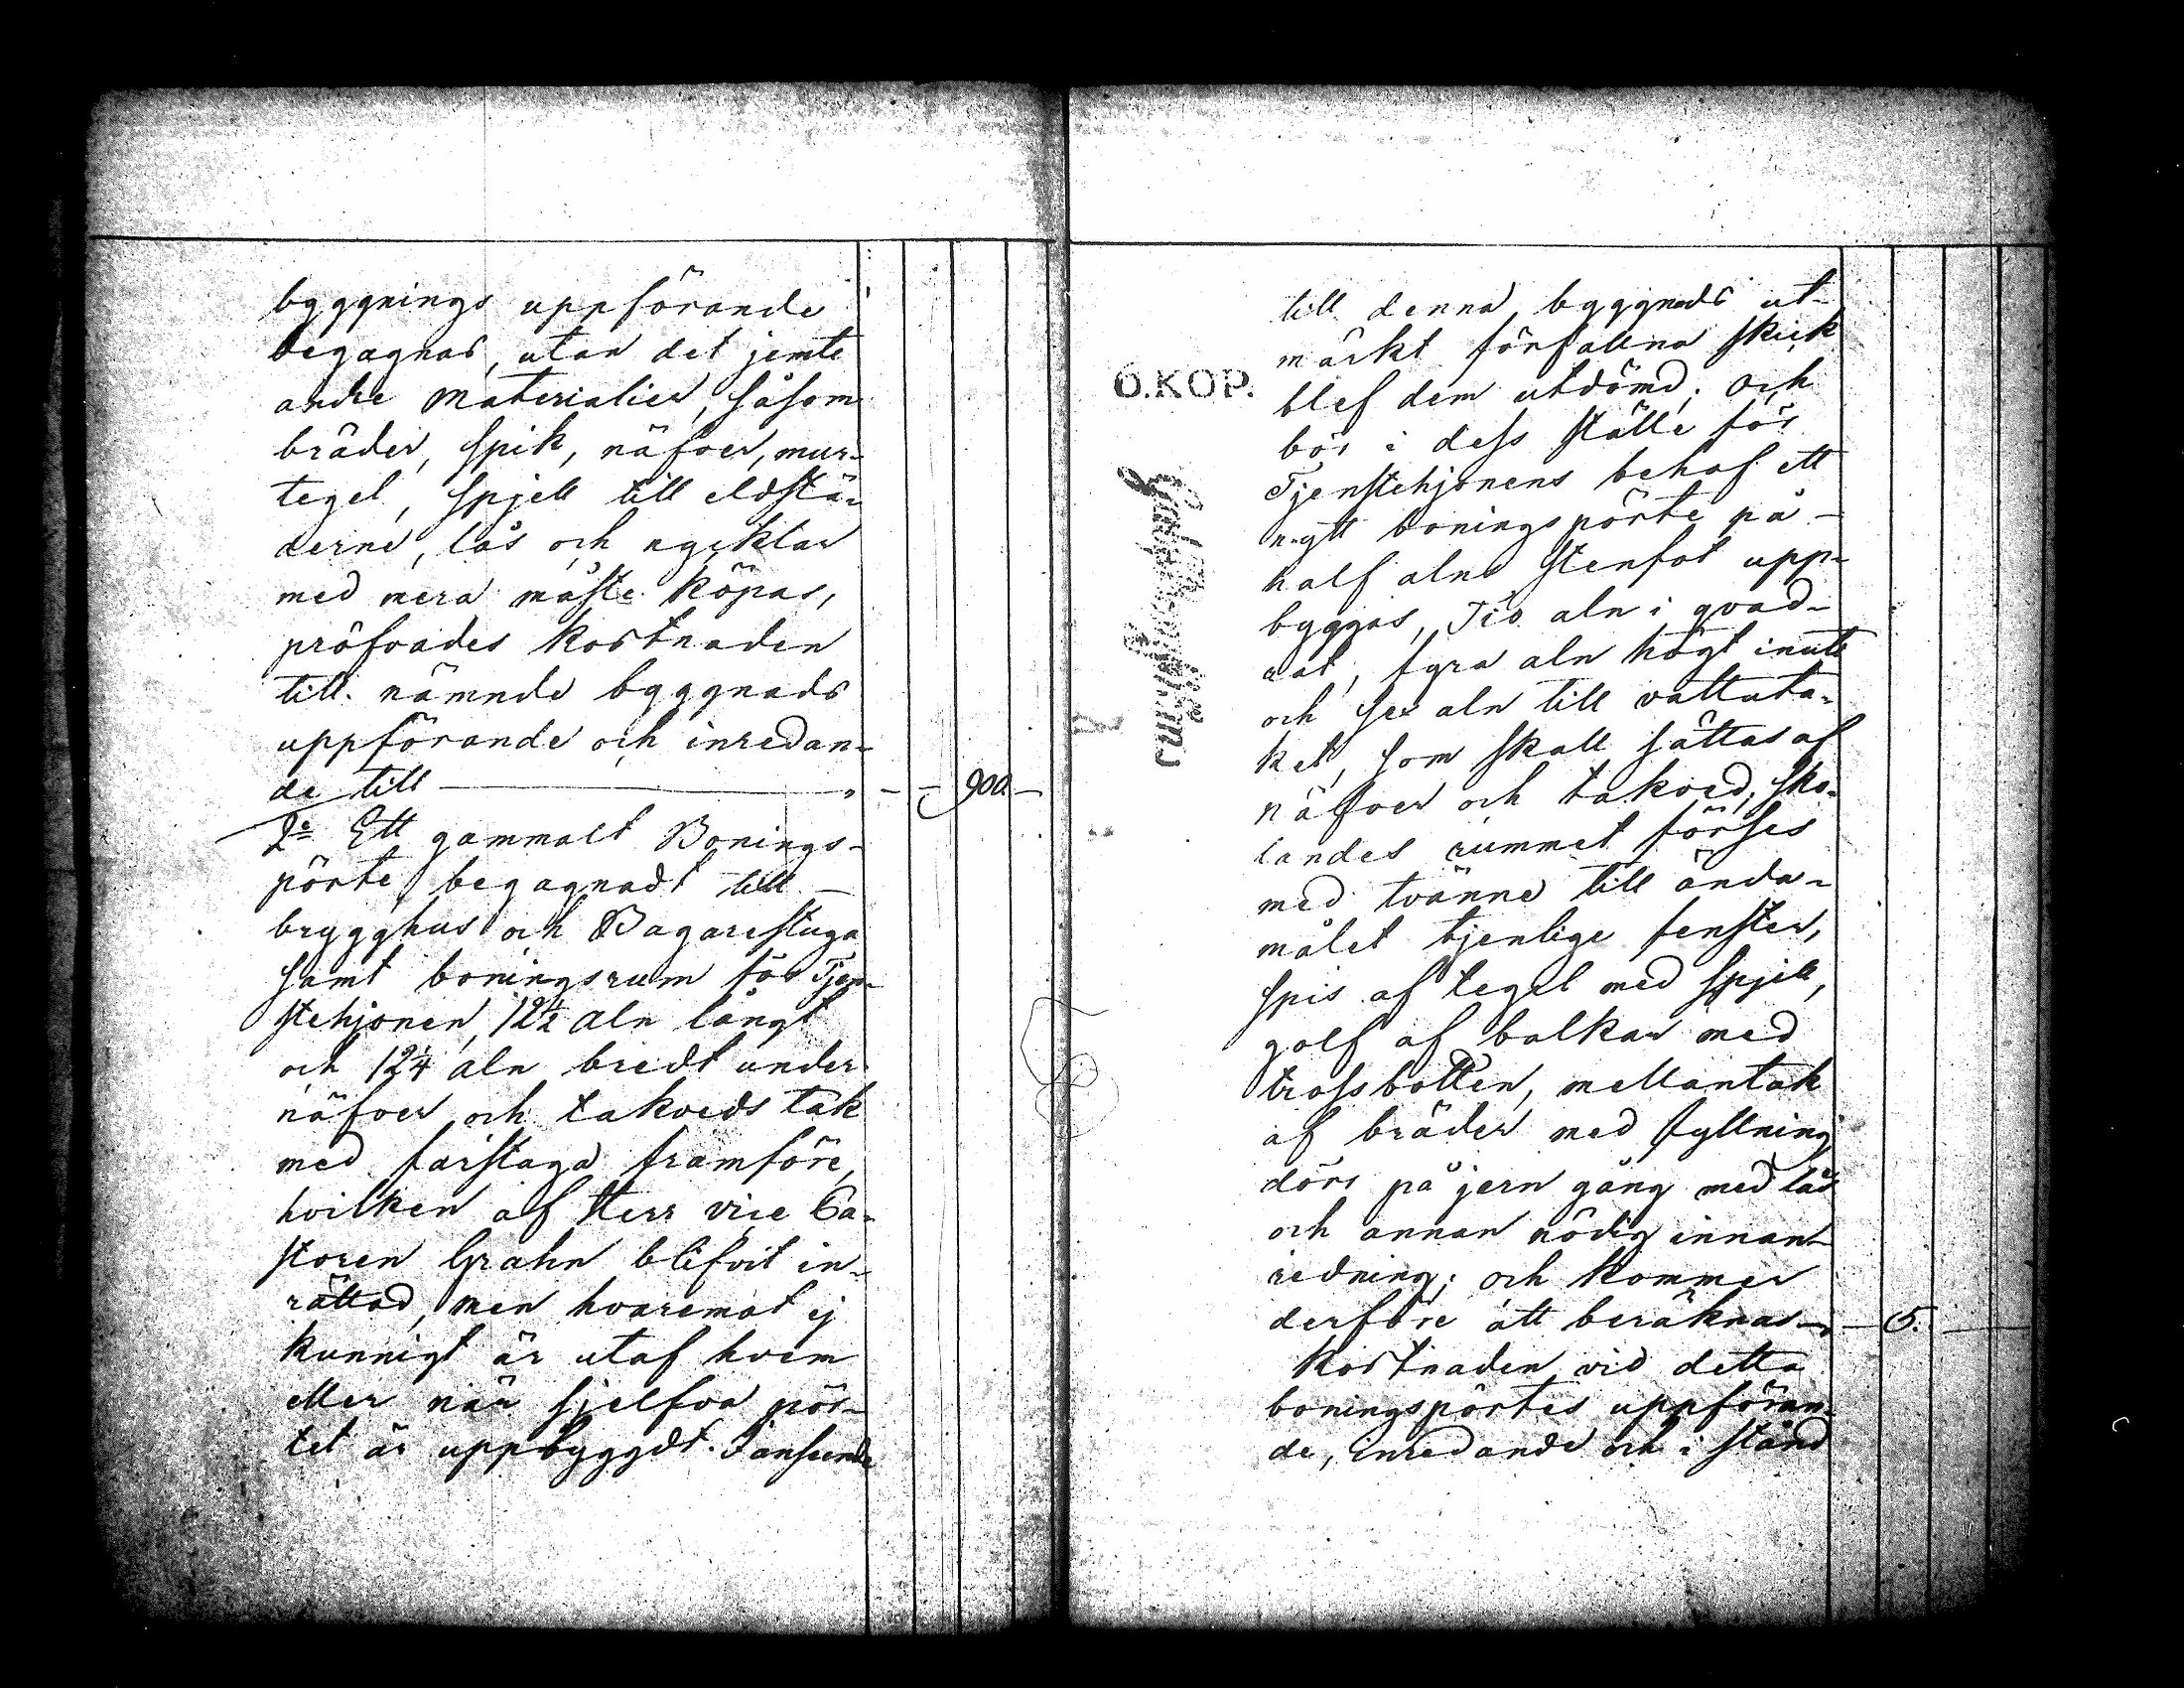 byggnings uppförande
begagnas, utan det jemte
andre Materialier, såsom
bräder, spik, näfver, mur-
tegel, spjell till eldstä-
derne, lås och nycklar
med mera måste köpas,
pröfvades kostnaden
till nämnde byggnads
uppförande och inredan-
de till — " — — 900. —
2o Ett gammalt Bonings-
pörte begagnadt till —
brygghus och Bagarestuga
samt boningsrum för Tjen-
stehjonen, 12½ aln långt
och 12¼ aln bredt under
näfver och takveds tak
med farstuga framföre,
hvilken af Herr vice Pa-
storen Grahn blifvit in-
rättad, men hvaremot ej
kunnigt är utaf hvem
eller när sjelfva pör-
tet är uppbyggdt. I anseende
till denna byggnads ut-
märkt förfallna skick
blef dem utdömd; och
bör i dess ställe för
Tjenstehjonens behof ett
nytt boningspörte på —
half alns stenfot upp-
byggas, Tio aln i qvad-
rat, fyra aln högt inuti
och sex aln till vattuta-
ket, som skall sättas af
näfver och takved; sko-
landes rummet förses
med tvänne till ända-
målet tjenlige fenster,
spis af tegel med spjell,
golf af balkar med
trossbotten, mellantak
af bräder med fyllning
dörr på jern gång med lås
och annan nödig innan-
redning; och kommer
derföre att beräknas — — 5. —
Kostnaden vid detta
boningspörtes uppföran-
de, inredande och i stånd
Ö.KOP.